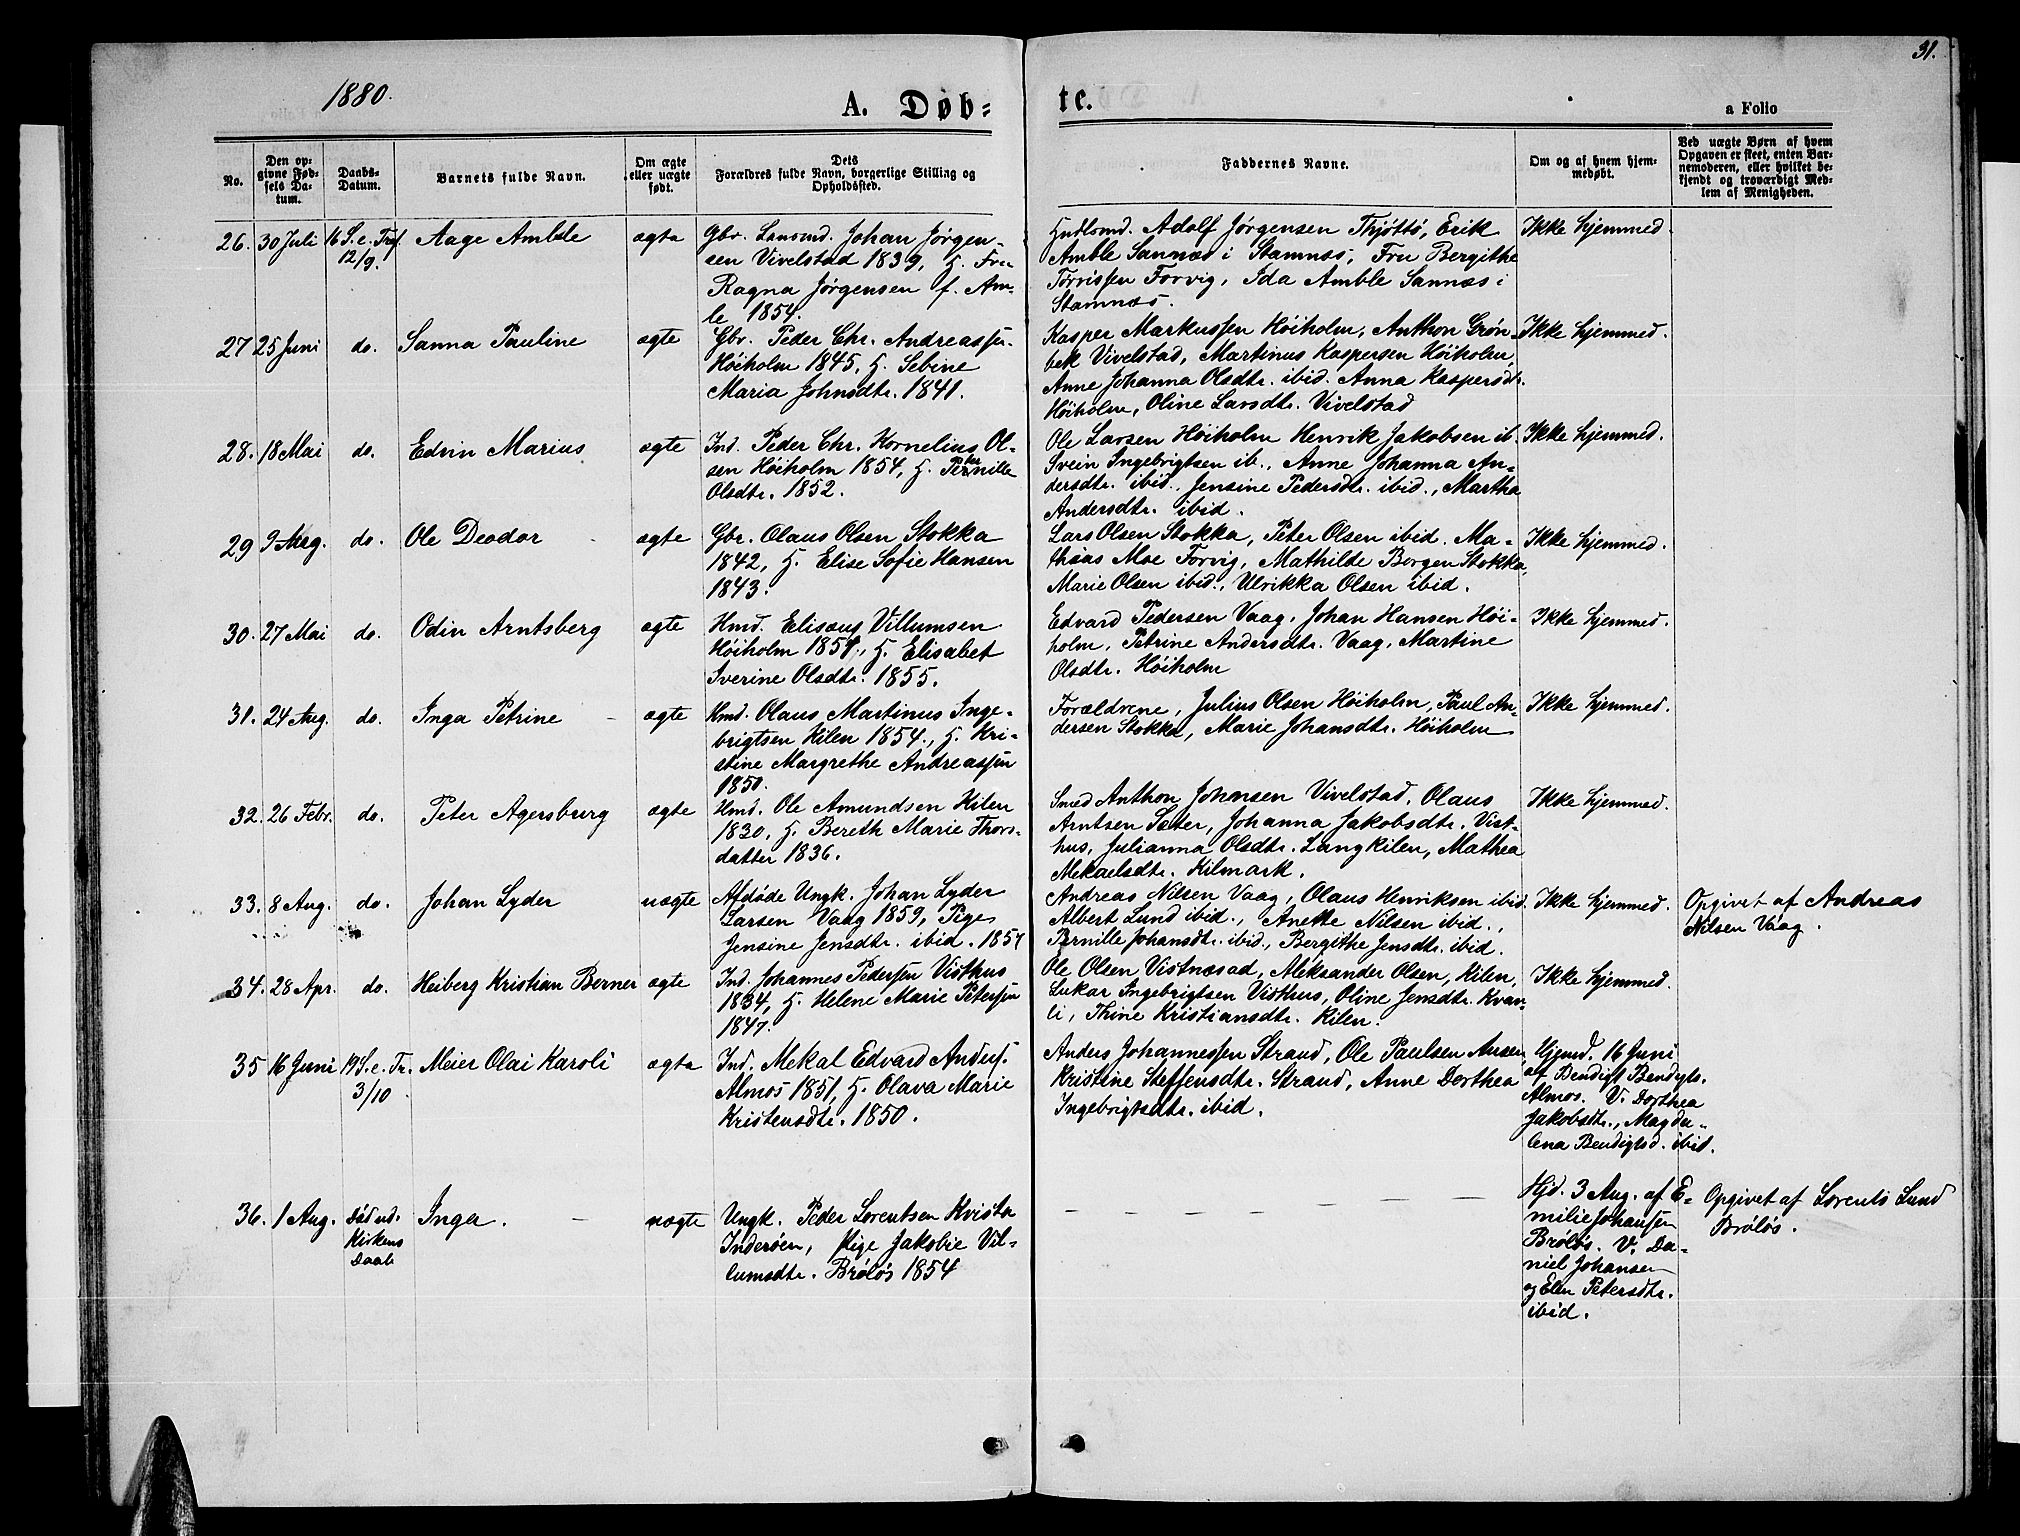 31.
1880.
A. Døb-
te.
a Folio
No.
Den op-
givne Fød-
sels Da-
tum.
Daabs-
Datum.
Barnets fulde Navn.
Om ægte
eller uægte
født.
Dets
Forældres fulde Navn, borgerlige Stilling og
Opholdssted.
Faddernes Navne.
Om og af hvem hjem-
medøbt.
Ved uægte Børn af hvem
Opgaven er skeet, enten Bar-
nemoderen, eller hvilket be-
kjendt og troværdigt Med-
lem af Menigheden.
26. 30 Juli
16 S. e. Tref.
12/9.
Aage Amble
ægte
Gbr. Lensmd. Johan Jørgen-
sen Vivelstad 1839, H. Fru
Ragna Jørgensen f. Am-
le 1854.
Hndlsmd. Adolf Jørgensen Thjøttö, Erik
Amble Sannæs i Stamnæs, Fru Bergithe
Tørrissen Forvig, Ida Amble Sannæs i
Stamnæs.
Ikke hjemmed.
27 25 Juni do. Sanna Pauline ægte
Gbr. Peder Chr. Andreassen
Höiholm 1845, H. Sebine
Maria Johnsdtr. 1841.
Kasper Markussen Höiholm, Anthon Grøn-
bek Vivelstad, Martinus Kaspersen Höiholm,
Anne Johanna Olsdtr. ibid. Anna Kaspersdtr.
Höiholm, Oline Larsdtr. Vivelstad
Ikke hjemmed.
28. 18 Mai do. Edvin Marius ægte
Ind. Peder Chr. Kornelius Ol-
sen Höiholm 1854, H. Pernille
Olsdtr. 1852.
Ole Larsen Höiholm Henrik Jakobsen ib.
Svein Ingebrigtsen ib., Anne Johanna An-
dersdtr. ibid., Jensine Pedersdtr. ibid., Martha
Andersdtr. ibid.
Ikke hjemmed.
29 9 Aug. do. Ole Deodor ægte
Gbr. Olaus Olsen Stokka
1842, H. Elise Sofie Hansen
1843.
Lars Olsen Stokka, Peter Olsen ibid. Ma-
thias Moe Forvig, Mathilde Borgen Stokka,
Marie Olsen ibid., Ulrikka Olsen ibid.
Ikke hjemmed.
30. 27 Mai do. Odin Arntsberg ægte
Hmd. Elisæus Villumsen
Höiholm 1851, H. Elisabet
Sverine Olsdtr. 1855.
Edvard Pedersen Vaag, Johan Hansen Höi-
holm, Petrine Andersdtr. Vaag, Martine
Olsdtr. Höiholm
Ikke hjemmed.
31. 24 Aug. do. Inga Petrine ægte
Hmd. Olaus Martinus Inge-
brigtsen Kilen 1854., H. Kri-
stine Margrethe Andreassen
1850.
Forældrene, Julius Olsen Höiholm, Paul An-
dersen Stokka, Marie Johansdtr. Höiholm
Ikke hjemmed.
32. 26 Febr. do. Peter Agersburg ægte
Hmd. Ole Amundsen Kilen
1830, H. Bereth Marie Thors-
datter 1836.
Smed Anthon Johnsen Vivelstad, Olaus
Arntsen Sæter, Johanna Jakobsdtr. Vist-
hus, Julianna Olsdtr. Langkilen, Mathea
Mekaelsdtr. Kilmark.
Ikke hjemmed.
33. 8 Aug. do. Johan Lyder uægte
Afdøde Ungk. Johan Lyder
Larsen Vaag 1859, Pige
Jensine Jensdtr. ibid. 1857
Andreas Nilsen Vaag, Olaus Henriksen ibid.
Albert Lund ibid., Anette Nilsen ibid.,
Pernille Johansdtr. ibid., Bergithe Jensdtr. ibid.
Ikke hjemmed.
Opgivet af Andreas
Nilsen Vaag.
34. 28 Apr. do. Heiberg Kristian Berner ægte
Ind. Johannes Pedersen Visthus
1834, H. Helene Marie Petersen
1847.
Ole Olsen Vistnæsad, Aleksander Olsen, Kilen,
Lukas Ingebrigtsen Visthus, Oline Jensdtr. Kvan-
li, Thine Kristiansdtr. Kilen.
Ikke hjemmed.
35 16 Juni
19 S. e. Tr.
3/10
Meier Olai Karoli
ægte
Ind. Mekal Edvard Anders.
Almos 1851, H. Olava Marie
Kristensdtr. 1850.
Anders Johannessen Strand, Ole Paulsen Ausen,
Kristine Steffensdtr. Strand, Anne Dorthea
Ingebrigtsdtr. ibid.
Hjemd. 16 Juni
af Bendigt Bendigts.
Almos. V. Dorthea
Jakobsdtr., Magda-
lena Bendigtsd. ibid.
36. 1 Aug.
Død ud.
Kirkens
Daab
Inga.
uægte
Ungk. Peder Lorentsen Kvista
Inderøen, Pige Jakobie Vil-
lumsdtr. Brøløs 1854
Hjd. 3 Aug. af E-
milie Johansen
Brøløs. V. Da-
niel Johansen
og Elen Petersdtr.
ibid.
Opgivet af Lorents Lund
Brøløs.